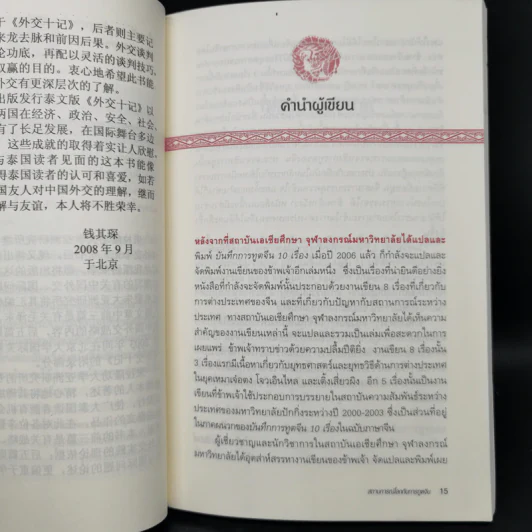 于《外交十记》，后者则主要记
来龙去脉和前因后果。外交谈判
论功底，再配以灵活的谈判技巧，
双赢的目的。衷心地希望此书能
外交有更深层次的了解。
出版发行泰文版《外交十记》以
两国在经济、政治、安全、社会、
有了长足发展，在国际舞台多边
，这些成就的取得着实让人欣慰。
与泰国读者见面的这本书能像
得泰国读者的认可和喜爱，如若
国友人对中国外交的理解，继而
解与友谊，本人将不胜荣幸。
钱其琛
2008 年 9 月
于北京
คำนำผู้เขียน
หลังจากที่สถาบันเอเชียศึกษา จุฬาลงกรณ์มหาวิทยาลัยได้แปลและ
พิมพ์ บันทึกการทูตจีน 10 เรื่อง เมื่อปี 2006 แล้ว ก็กำลังจะแปลและ
จัดพิมพ์งานเขียนของข้าพเจ้าอีกเล่มหนึ่ง ซึ่งเป็นเรื่องที่น่ายินดีอย่างยิ่ง
หนังสือที่กำลังจะจัดพิมพ์นั้นประกอบด้วยงานเขียน 8 เรื่องที่เกี่ยวกับ
การต่างประเทศของจีน และที่เกี่ยวกับปัญหากับสถานการณ์ระหว่าง
ประเทศ ทางสถาบันเอเชียศึกษา จุฬาลงกรณ์มหาวิทยาลัยได้เห็นความ
สำคัญของงานเขียนเหล่านี้ จะแปลและรวมเป็นเล่มเพื่อสะดวกในการ
เผยแพร่ ข้าพเจ้าทราบข่าวด้วยความปลื้มปีติยิ่ง งานเขียน 8 เรื่องนั้น
3 เรื่องแรกมีเนื้อหาเกี่ยวกับยุทธศาสตร์และยุทธวิธีด้านการต่างประเทศ
ในยุคเหมาเจ๋อตง โจวเอินไหล และเติ้งเสี่ยวผิง อีก 5 เรื่องนั้นเป็นงาน
เขียนที่ข้าพเจ้าใช้ประกอบการบรรยายในสถาบันความสัมพันธ์ระหว่าง
ประเทศของมหาวิทยาลัยปักกิ่งระหว่างปี 2000-2003 ซึ่งเป็นส่วนที่อยู่
ในภาคผนวกของบันทึกการทูตจีน 10 เรื่องในฉบับภาษาจีน
ผู้เชี่ยวชาญและนักวิชาการในสถาบันเอเชียศึกษา จุฬาลงกรณ์
มหาวิทยาลัยได้อุตส่าห์สรรหางานเขียนของข้าพเจ้า จัดแปลและพิมพ์เผย
15